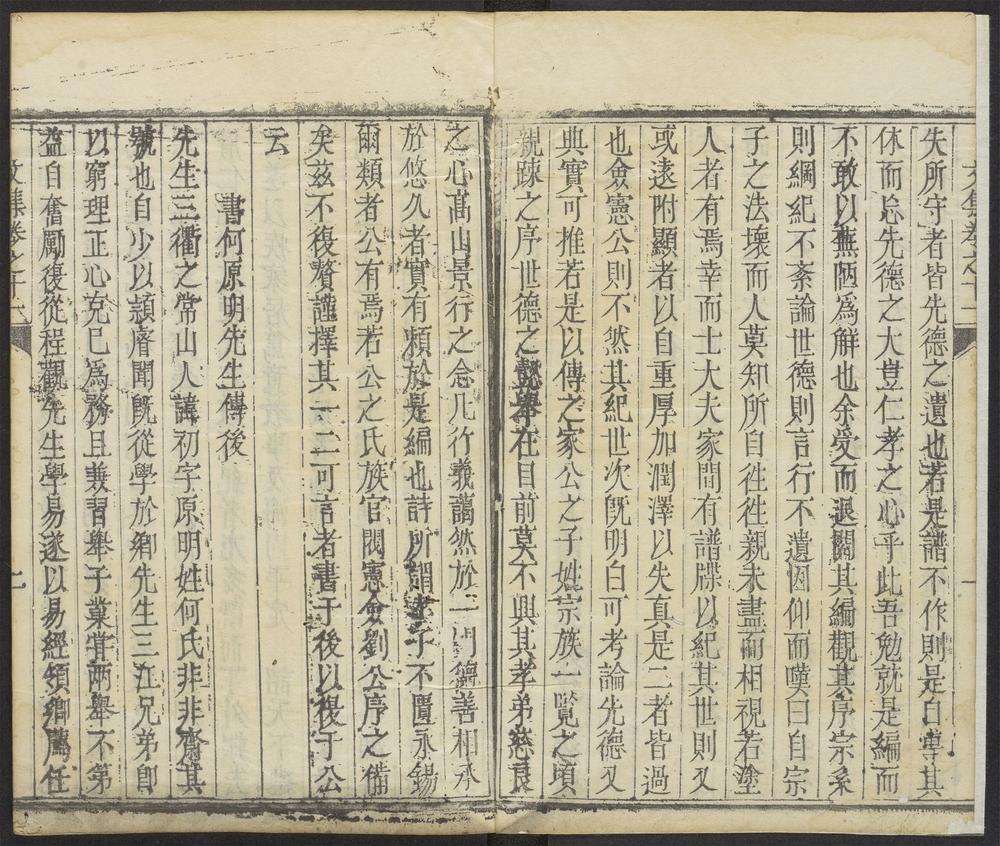 失所守者皆先德之遺也若是譜不作則是自專其
休而忘先德之大豈仁孝之心乎此吾勉就是編而
不敢以蕪陋爲解也余受而退閱其編觀其序宗系
則綱紀不紊論世德則言行不遺因仰而嘆曰自宗
子之法壞而人莫知所自徃徃親未盡而相視若塗
人者有焉幸而士大夫家間有譜牒以紀其世則又
或遠附顯者以自重厚加潤澤以失真是二者皆過
也僉憲公則不然其紀世次旣明白可考論先德又
典實可推若是以傳之家公之子姓宗族一覽之頃
親踈之序世德之懿舉在目前莫不興其孝弟慈良
之心高山景行之念凡行義藹然於一門繼善相承
於悠久者實有頼於是編也詩所謂孝子不匱永錫
爾類者公有焉若公之氏族官閥憲僉劉公序之備
矣兹不復贅謹擇其一二可言者書于後以復于公
云
書何原明先生傳後
先生三衢之常山人諱初字原明姓何氏非非齋其
號也自少以頴睿聞旣從學於鄉先生三江兄弟卽
以窮理正心克巳爲務且兼習舉子業甞兩舉不第
益自奮勵復從程觀先生學易遂以易經領鄉薦任
文集卷之十
七